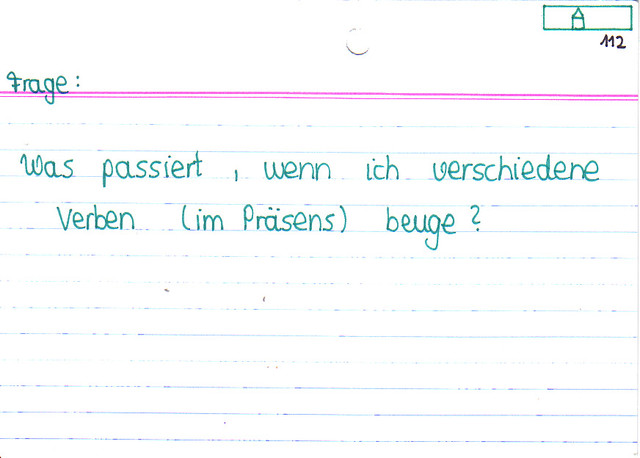 112
Frage:
Was passiert, wenn ich verschiedene
Verben (im Präsens) beuge?